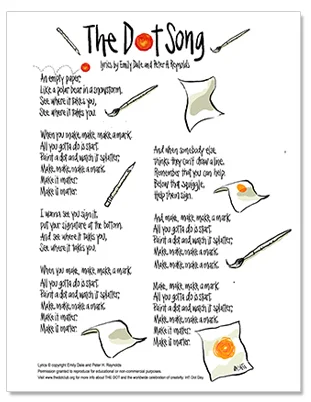 The Dot Song
lyrics by Emily Dale and Peter H. Reynolds
An empty paper,
Like a polar bear in a snowstorm,
See where it takes you,
See where it takes you.
When you make, make, make a mark
All you gotta do is start.
Paint a dot and watch it splatter,
Make, make, make a mark.
Make it matter.
Make it matter.
I wanna see you sign it,
put your signature at the bottom.
And see where it takes you,
See where it takes you.
When you make, make, make a mark
All you gotta do is start.
Paint a dot and watch it splatter,
Make, make, make a mark.
Make it matter.
Make it matter.
And when somebody else
thinks they can't draw a line,
Remember that you can help.
Below that squiggle,
Help them sign.
And make, make, make a mark
All you gotta do is start.
Paint a dot and watch it splatter,
Make, make, make a mark.
Make, make, make a mark
All you gotta do is start.
Paint a dot and watch it splatter,
Make, make, make a mark.
Make it matter.
Make it matter.
Lyrics © copyright Emily Dale and Peter H. Reynolds
Permission granted to reproduce for educational or non-commercial purposes.
Visit www.thedotclub.org for more info about THE DOT and the worldwide celebration of creativity: Int'l Dot Day.